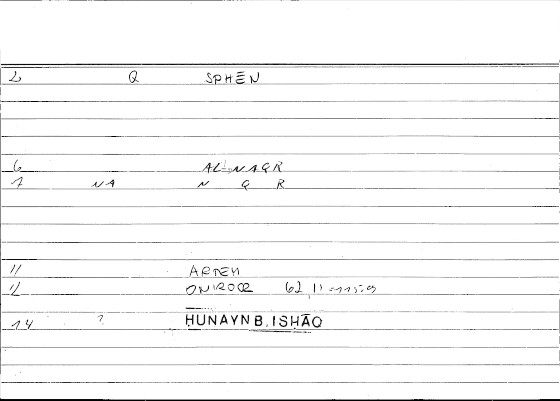 2 Q SPHEN
6 AL-NAQR
7 NA N Q R
11 ARTEM
12 ONIROCR 62, 11
14 ? HUNAYN B. ISHĀQ